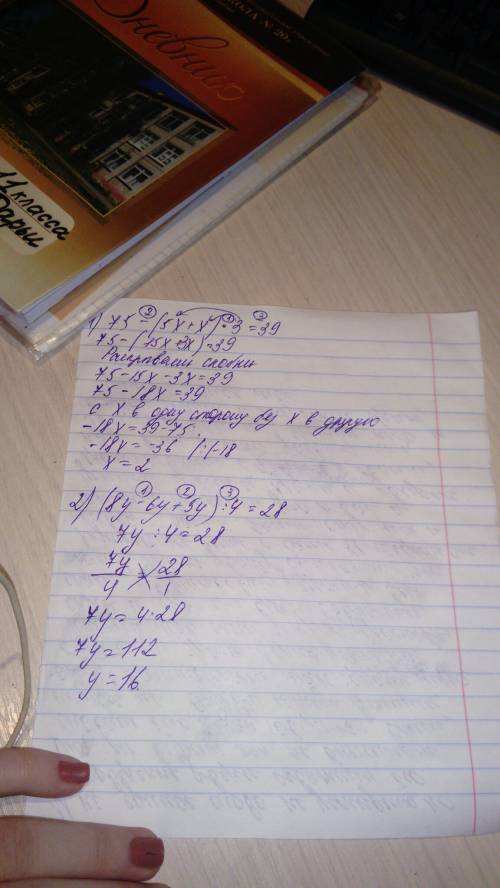 ШКОЛА № 20»
Дневник
11 класса
Дарьи
1) 75 - (5x + x) · 3 = 39
② ① ③
75 - (15x + 3x) = 39
Раскрываем скобки
75 - 15x - 3x = 39
75 - 18x = 39
с x в одну сторону без x в другую
-18x = 39 - 75
-18x = -36 | : (-18
x = 2
① ② ③
2) (8y - 6y + 5y) : 4 = 28
7y : 4 = 28
7y/4 = 28/1
7y = 4 · 28
7y = 112
y = 16.